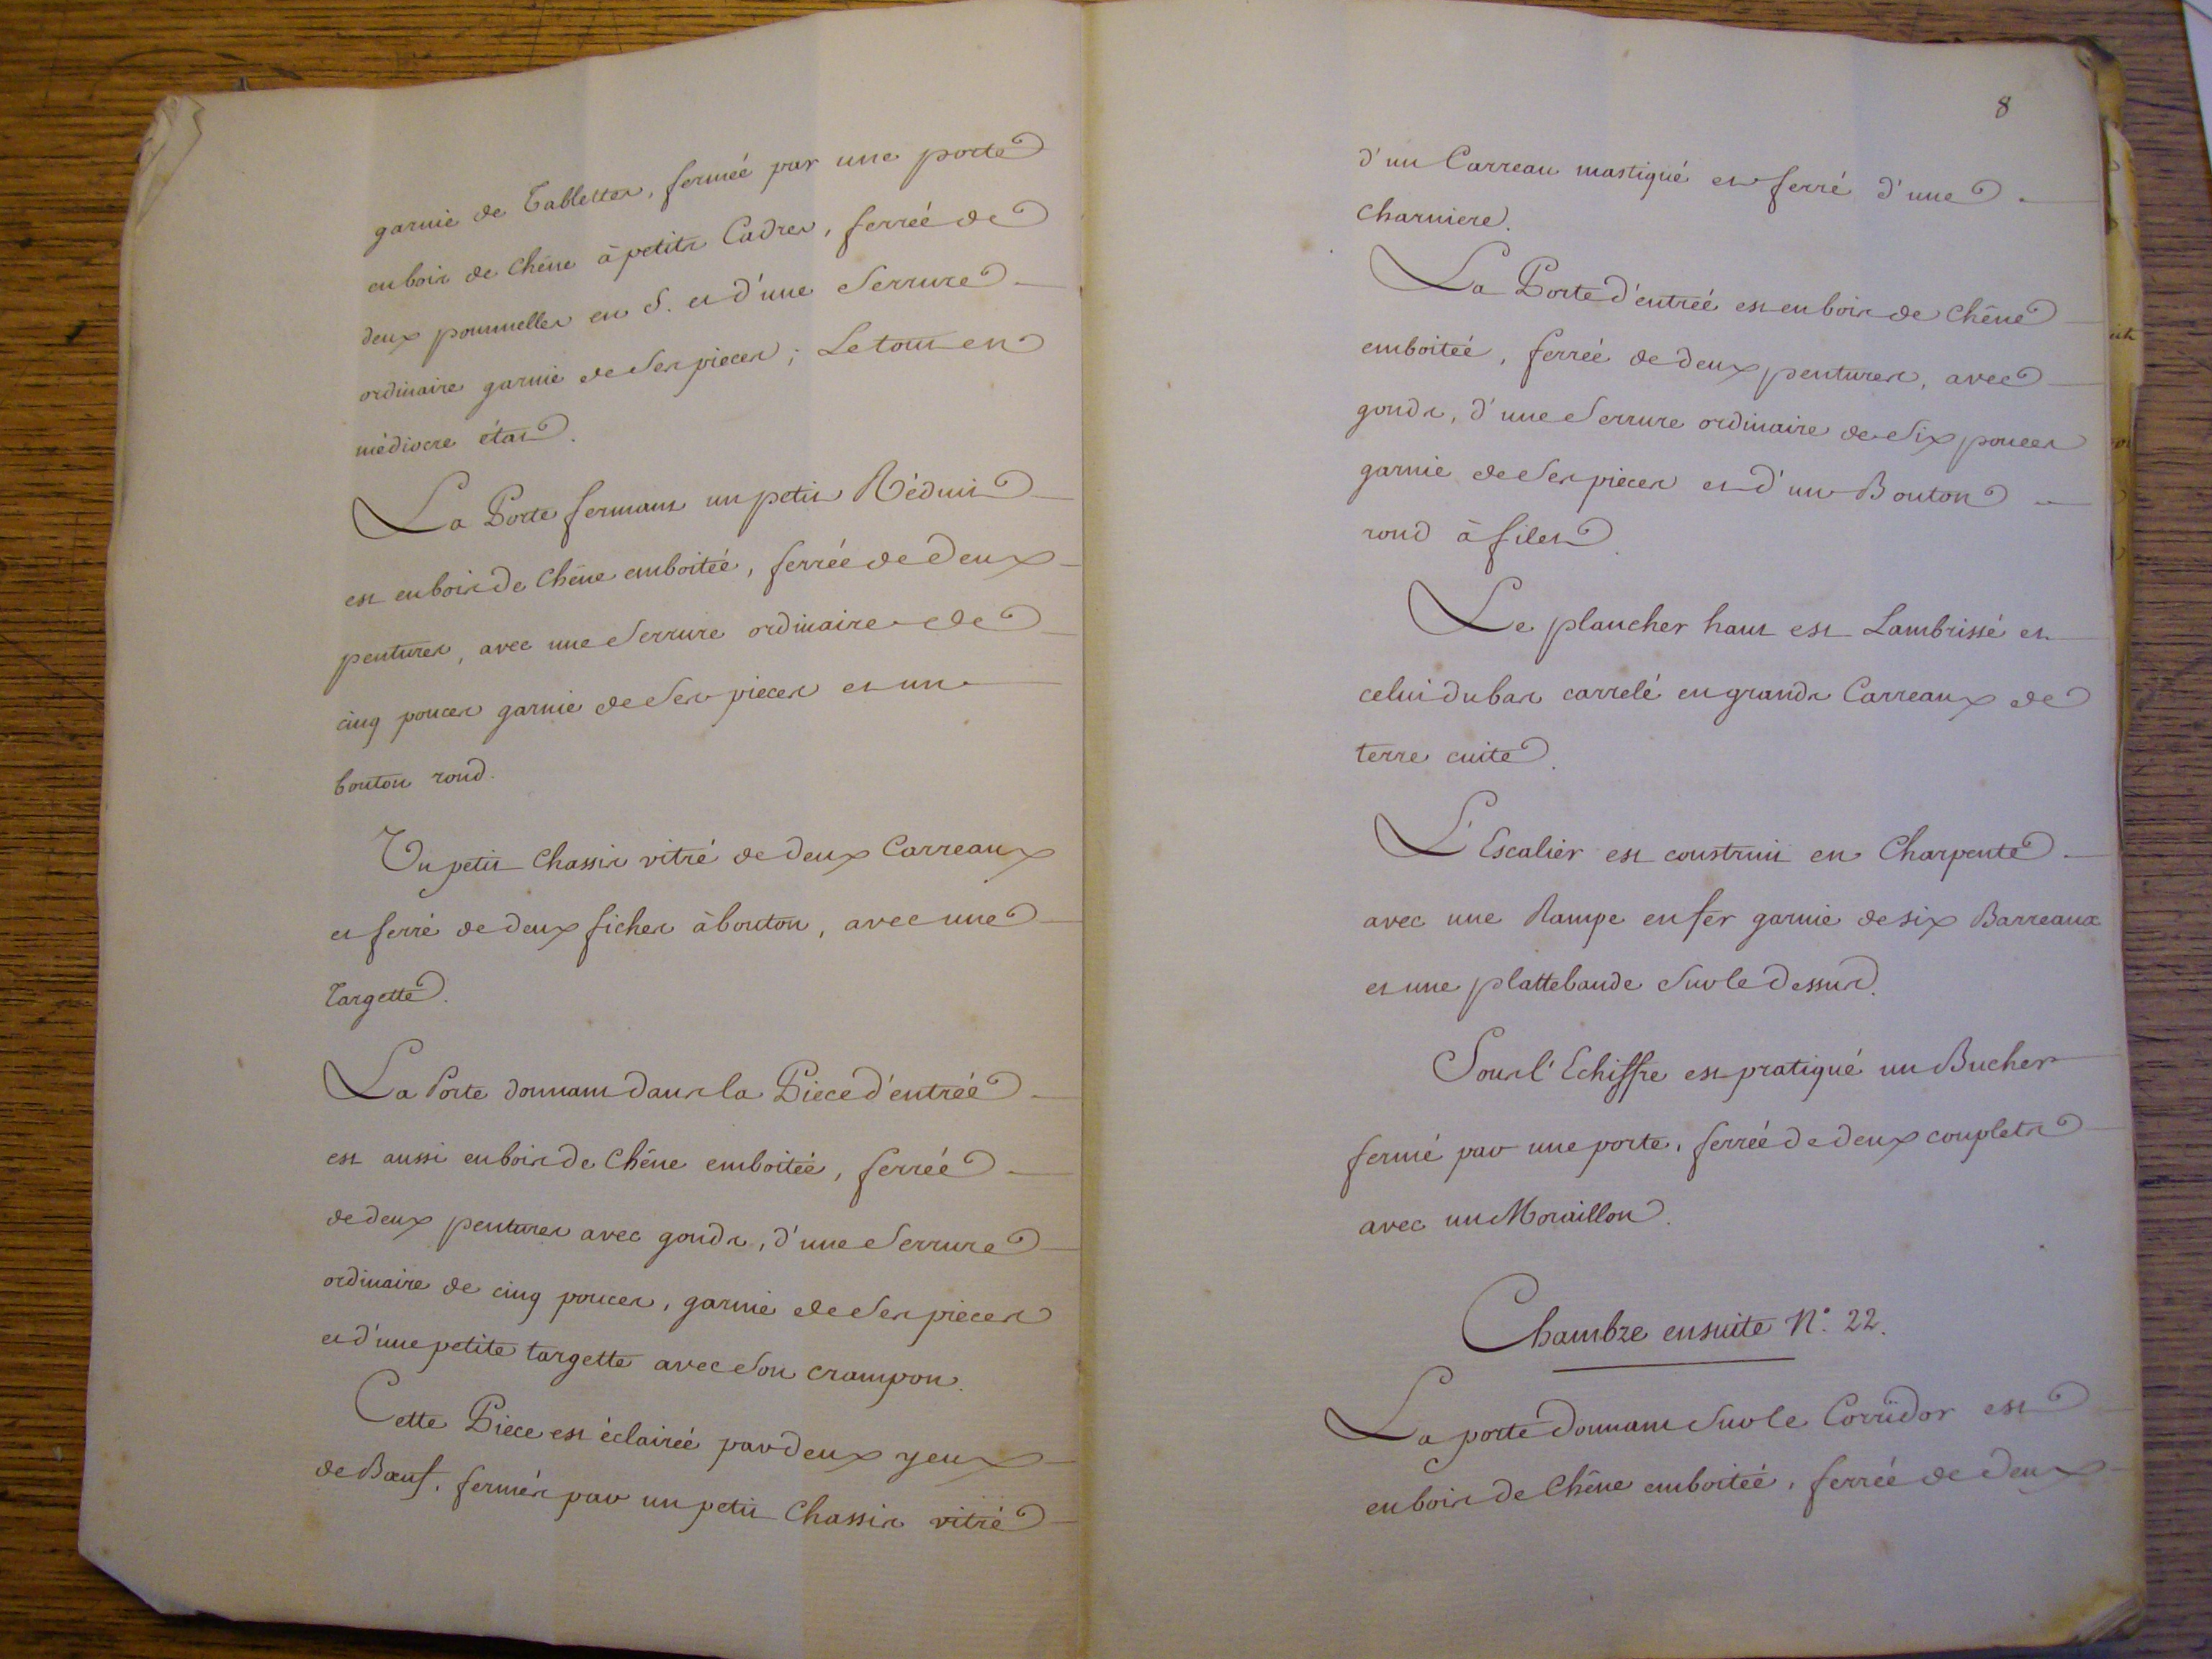 garnie de Tablettes, fermée par une porte
en bois de Chêne à petits Cadres, ferrée de
deux poumelles en S. et d'une Serrure
ordinaire garnie de Ses pieces ; Le tout en
médiocre état.
La Porte fermant un petit Réduit
est en bois de Chêne emboitée, ferrée de deux
pentures, avec une Serrure ordinaire de
cinq pouces garnie de Ses pieces et un
bouton rond.
Un petit Chassis vitré de deux Carreaux
et ferré de deux fiches à bouton, avec une
Targette.
La Porte donnant dans la Piece d'entrée
est aussi en bois de Chêne emboitée, ferrée
de deux pentures avec gonds, d'une Serrure
ordinaire de cinq pouces, garnie de Ses pieces
et d'une petite targette avec Son crampon.
Cette Piece est éclairée par deux yeux
de Bœuf, fermés par un petit Chassis vitré
8
d'un Carreau mastiqué et ferré d'une
Charniere.
La Porte d'entrée est en bois de Chêne
emboitée, ferrée de deux pentures, avec
gonds, d'une Serrure ordinaire de Six pouces
garnie de Ses pieces et d'un Bouton
rond à filet.
Le plancher haut est Lambrissé et
celui du bas carrelé en grands Carreaux de
terre cuite.
L'Escalier est construit en Charpente
avec une Rampe en fer garnie de six Barreaux
et une plattebande Sur le dessus.
Sous l'Echiffre est pratiqué un Bucher
fermé par une porte, ferrée de deux couplets
avec un Moraillon.
Chambre ensuite N.° 22.
La porte donnant Sur le Corridor est
en bois de Chêne emboitée, ferrée de deux